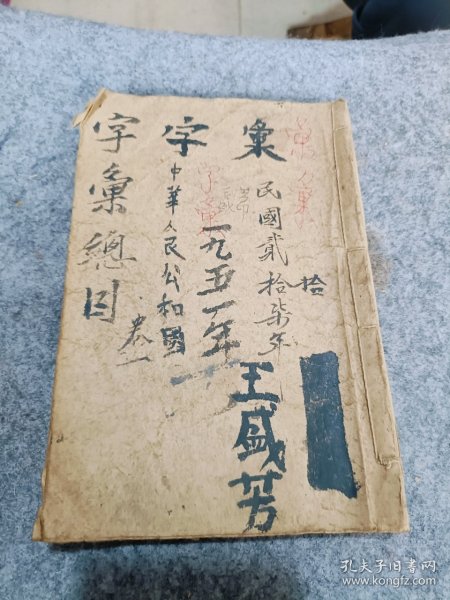 彙
民國貳拾柒年
拾
王盛芳
字
一九五一年
中華人民公和國
字彙
字彙總目
卷一
孔夫子旧书网
www.kongfz.com